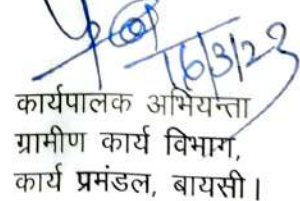 16/3/23
कार्यपालक अभियन्ता
ग्रामीण कार्य विभाग,
कार्य प्रमंडल, बायसी।